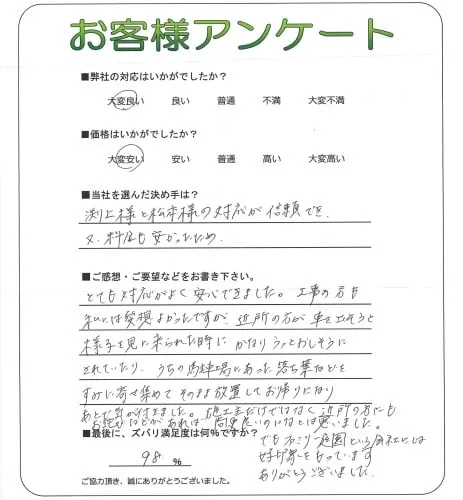 お客様アンケート
■弊社の対応はいかがでしたか？
大変良い 良い 普通 不満 大変不満
■価格はいかがでしたか？
大変安い 安い 普通 高い 大変高い
■当社を選んだ決め手は？
渕上様と松本様の対応が信頼でき、
又、料金も安かったため。
■ご感想・ご要望などをお書き下さい。
とても対応がよく安心できました。工事の方も
私には愛想よかったですが、近所の方が車を出そうと
様子を見に来られた時に かなりうっとおしそうに
されていたり、うちの駐車場にあった落ち葉などを
すみに寄せ集めて そのまま放置してお帰りになり
あとで気が付きました。施工主だけではなく近所の方にも
お気遣いなどがあれば、尚更良いのになとは思いました。
■最後に、ズバリ満足度は何％ですか？
でも 庭園という会社には
98 ％
好印象をもっています
ありがとうございました。
ご協力頂き、誠にありがとうございました。